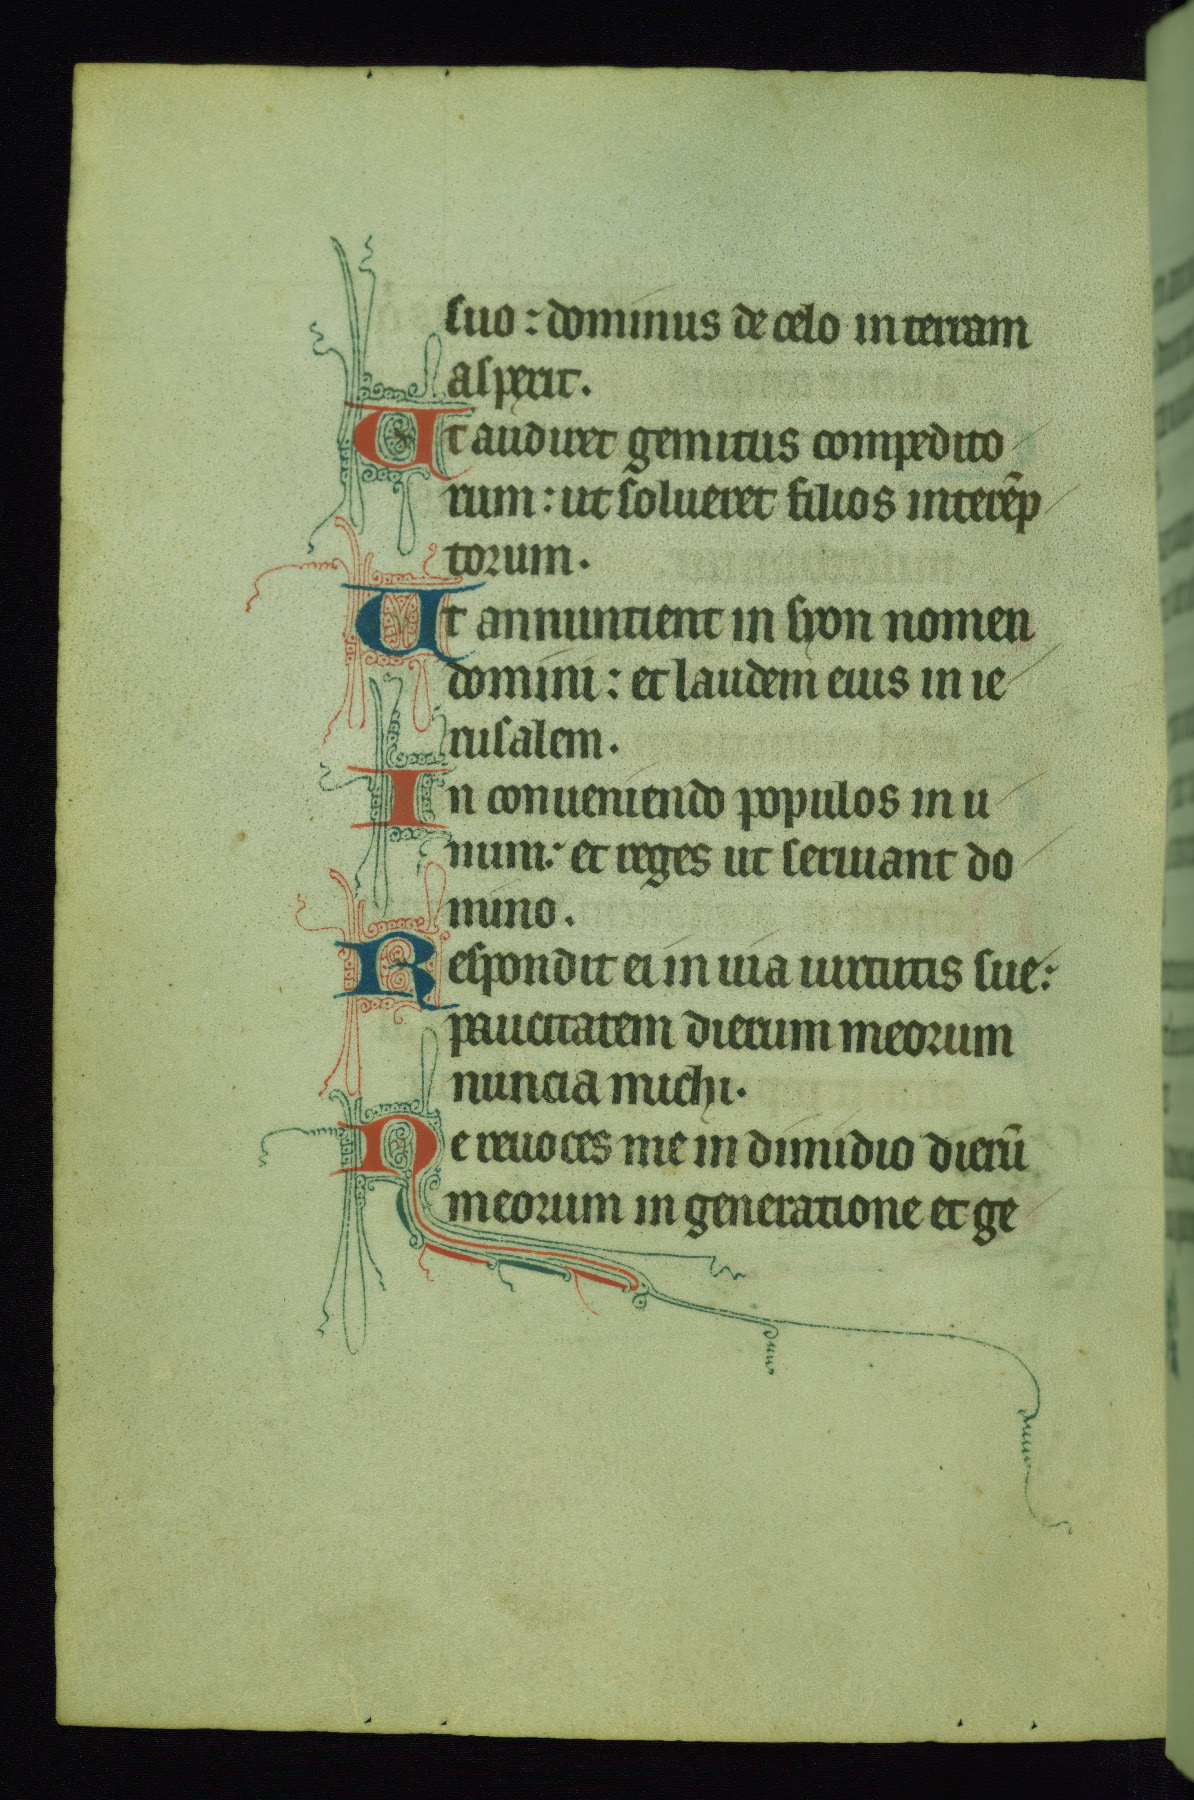 suo : dominus de celo in terram
asperit.
Ut audiret gemitus compedito
rum : ut solueret filios interẽp
torum.
Ut annuntient in syon nomen
domini : et laudem eius in ie
rusalem.
In conueniendo populos in u
num : et reges ut seruiant do
mino.
Respondit ei in uia uirtutis sue :
paucitatem dierum meorum
nuncia michi.
Ne reuoces me in dimidio dierũ
meorum in generatione et ge